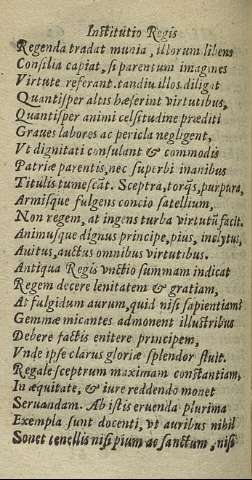 Institutio Regis
Regenda tradat munia, illorum libens
Consilia capiat, si parentum imagines
Virtute referant. tandiu illos diligat
Quantisper altis hæserint virtutibus,
Quantisper animi celsitudine præditi
Graues labores ac pericla negligent,
Vt dignitati consulant & commodis
Patriæ parentis, nec superbi inanibus
Titulis tumescãt. Sceptra, torq́s, purpura,
Armisque fulgens concio satellium,
Non regem, at ingens turba virtutũ facit.
Animusque dignus principe, pius, inclytus,
Auitus, auctus omnibus virtutibus.
Antiqua Regis vnctio summam indicat
Regem decere lenitatem & gratiam,
At fulgidum aurum, quid nisi sapientiam?
Gemmæ micantes admonent illustribus
Debere factis enitere principem,
Vnde ipse clarus gloriæ splendor fluit.
Regale sceptrum maximam constantiam,
In æquitate, & iure reddendo monet
Seruandam. Ab istis eruenda plurima
Exempla sunt docenti, vt auribus nihil
Sonet tenellis nisi pium ac sanctum, nisi